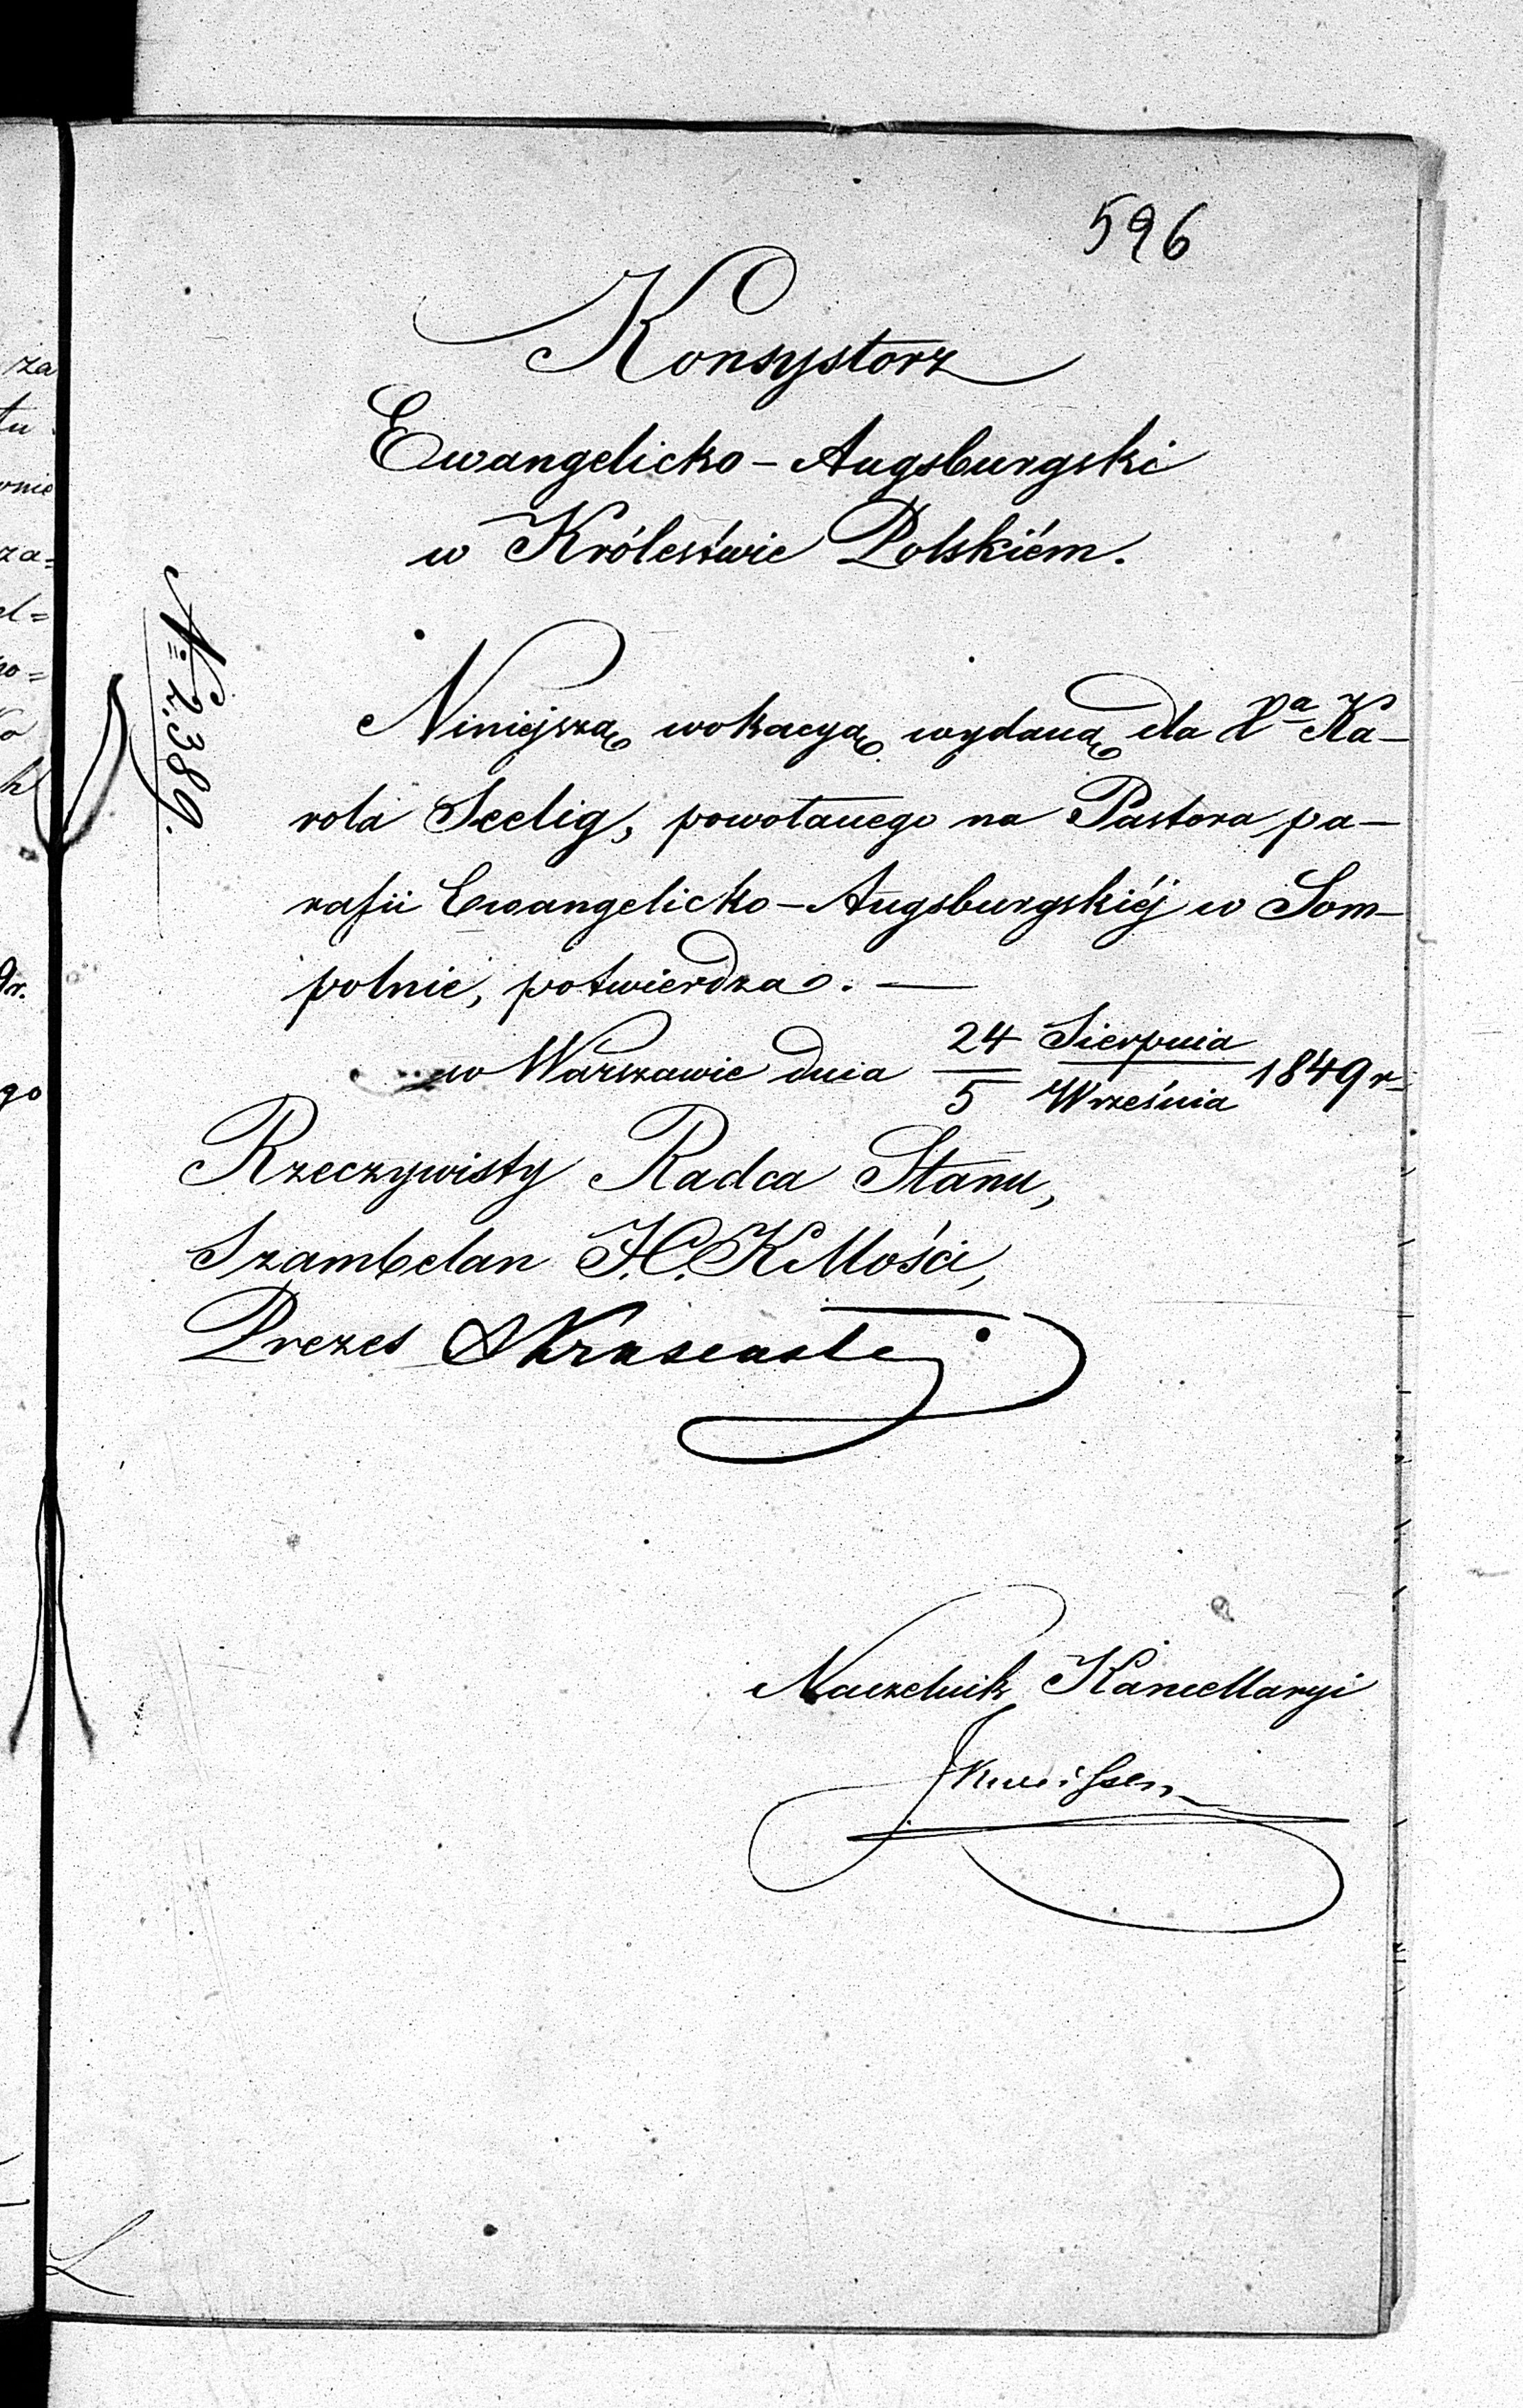 596
Konsystorz
Ewangelicko-Augsburgski
w Królestwie Polskiém.
№ 2,389.
Niniejszą wokacyą wydaną dla Xa Ka-
rola Seelig, powołanego na Pastora pa-
rafii Ewangelicko-Augsburgskiéj w Som-
polnie, potwierdza. —
w Warszawie dnia 24/5 Sierpnia/Września 1849 r.
Rzeczywisty Radca Stanu,
Szambelan J.C.K Mości,
Prezes
Naczelnik Kancellaryi